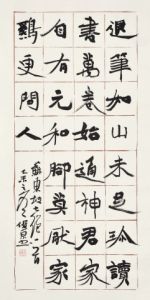 退筆如山未足珍讀
書萬卷始通神君家
自有元和腳莫厭家
鷄更問人
蘇東坡七絕一首